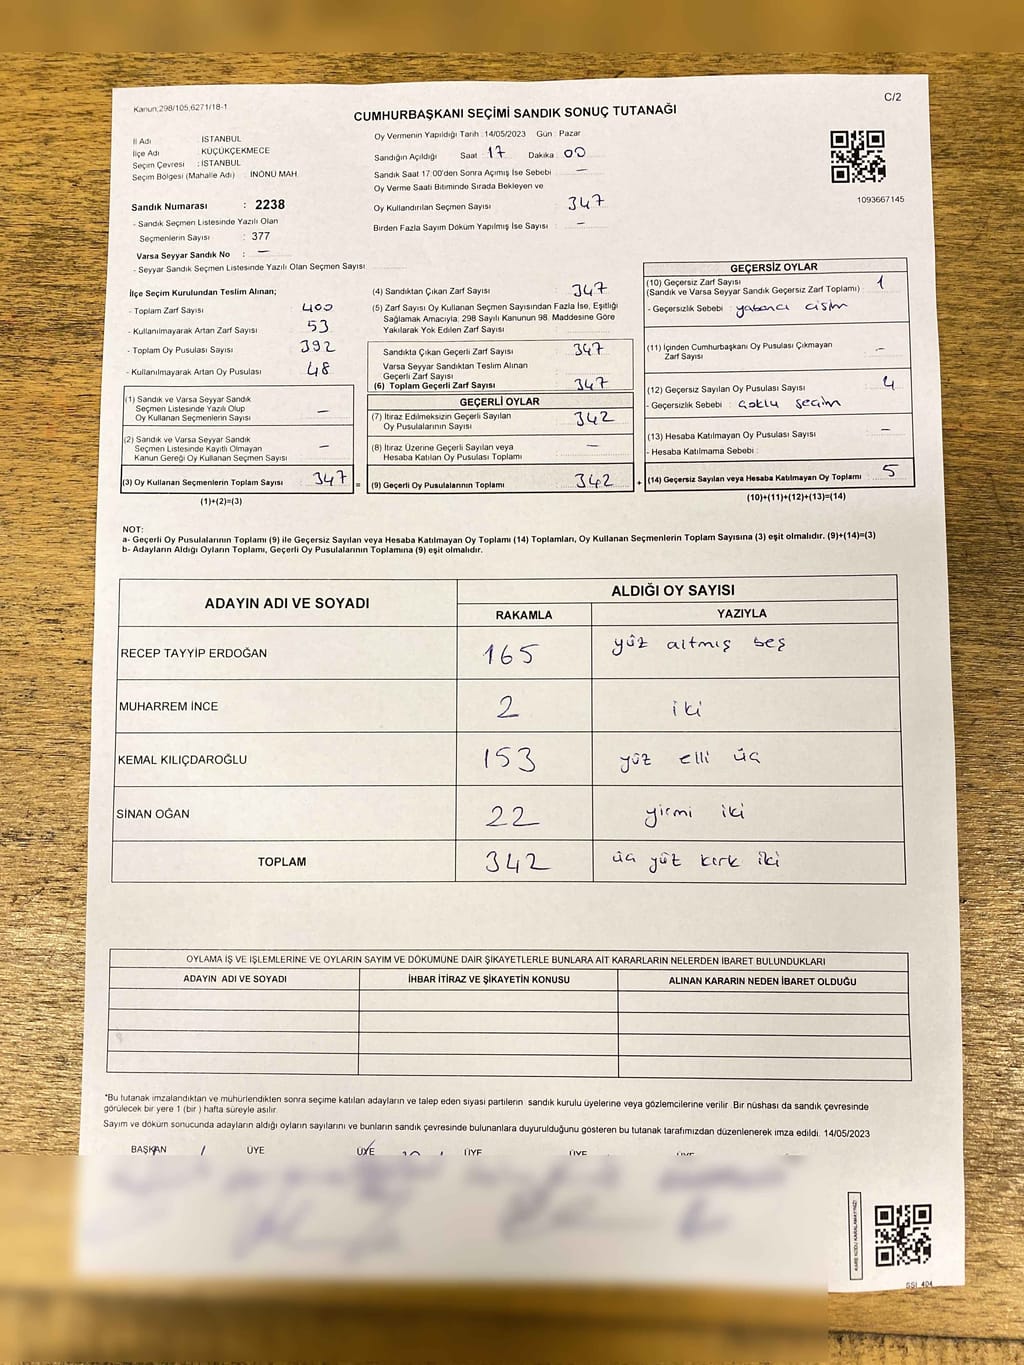 Kanun;298/105,6271/18-1
C/2
CUMHURBAŞKANI SEÇİMİ SANDIK SONUÇ TUTANAĞI
İl Adı : İSTANBUL
İlçe Adı : KÜÇÜKÇEKMECE
Seçim Çevresi : İSTANBUL
Seçim Bölgesi (Mahalle Adı) : İNÖNÜ MAH.
Sandık Numarası : 2238
- Sandık Seçmen Listesinde Yazılı Olan
Seçmenlerin Sayısı : 377
Varsa Seyyar Sandık No : —
- Seyyar Sandık Seçmen Listesinde Yazılı Olan Seçmen Sayısı
Oy Vermenin Yapıldığı Tarih : 14/05/2023 Gün : Pazar
Sandığın Açıldığı Saat : 17 Dakika : 00
Sandık Saat 17:00'den Sonra Açımış İse Sebebi : —
Oy Verme Saati Bitiminde Sırada Bekleyen ve
Oy Kullandırılan Seçmen Sayısı : 347
Birden Fazla Sayım Döküm Yapılmış İse Sayısı : —
1093667145
İlçe Seçim Kurulundan Teslim Alınan;
- Toplam Zarf Sayısı : 400
- Kullanılmayarak Artan Zarf Sayısı : 53
- Toplam Oy Pusulası Sayısı : 392
- Kullanılmayarak Artan Oy Pusulası : 48
(1) Sandık ve Varsa Seyyar Sandık
Seçmen Listesinde Yazılı Olup
Oy Kullanan Seçmenlerin Sayısı : —
(2) Sandık ve Varsa Seyyar Sandık
Seçmen Listesinde Kayıtlı Olmayan
Kanun Gereği Oy Kullanan Seçmen Sayısı : —
(3) Oy Kullanan Seçmenlerin Toplam Sayısı : 347 =
(1)+(2)=(3)
(4) Sandıktan Çıkan Zarf Sayısı : 347
(5) Zarf Sayısı Oy Kullanan Seçmen Sayısından Fazla İse, Eşitliği
Sağlamak Amacıyla, 298 Sayılı Kanunun 98. Maddesine Göre
Yakılarak Yok Edilen Zarf Sayısı
Sandıkta Çıkan Geçerli Zarf Sayısı : 347
Varsa Seyyar Sandıktan Teslim Alınan
Geçerli Zarf Sayısı
(6) Toplam Geçerli Zarf Sayısı : 347
GEÇERLİ OYLAR
(7) İtiraz Edilmeksizin Geçerli Sayılan
Oy Pusulalarının Sayısı : 342
(8) İtiraz Üzerine Geçerli Sayılan veya
Hesaba Katılan Oy Pusulası Toplamı : —
(9) Geçerli Oy Pusulalarının Toplamı : 342 +
GEÇERSİZ OYLAR
(10) Geçersiz Zarf Sayısı
(Sandık ve Varsa Seyyar Sandık Geçersiz Zarf Toplamı) : 1
- Geçersizlik Sebebi : yabancı cisim
(11) İçinden Cumhurbaşkanı Oy Pusulası Çıkmayan
Zarf Sayısı : -
(12) Geçersiz Sayılan Oy Pusulası Sayısı : 4
- Geçersizlik Sebebi : Çoklu seçim
(13) Hesaba Katılmayan Oy Pusulası Sayısı : —
- Hesaba Katılmama Sebebi :
(14) Geçersiz Sayılan veya Hesaba Katılmayan Oy Toplamı : 5
(10)+(11)+(12)+(13)=(14)
NOT:
a- Geçerli Oy Pusulalarının Toplamı (9) ile Geçersiz Sayılan veya Hesaba Katılmayan Oy Toplamı (14) Toplamları, Oy Kullanan Seçmenlerin Toplam Sayısına (3) eşit olmalıdır. (9)+(14)=(3)
b- Adayların Aldığı Oyların Toplamı, Geçerli Oy Pusulalarının Toplamına (9) eşit olmalıdır.
ADAYIN ADI VE SOYADI
ALDIĞI OY SAYISI
RAKAMLA YAZIYLA
RECEP TAYYİP ERDOĞAN 165 yüz altmış beş
MUHARREM İNCE 2 iki
KEMAL KILIÇDAROĞLU 153 yüz elli üç
SİNAN OĞAN 22 yirmi iki
TOPLAM 342 üç yüz kırk iki
OYLAMA İŞ VE İŞLEMLERİNE VE OYLARIN SAYIM VE DÖKÜMÜNE DAİR ŞİKAYETLERLE BUNLARA AİT KARARLARIN NELERDEN İBARET BULUNDUKLARI
ADAYIN ADI VE SOYADI İHBAR İTİRAZ VE ŞİKAYETİN KONUSU ALINAN KARARIN NEDEN İBARET OLDUĞU
*Bu tutanak imzalandıktan ve mühürlendikten sonra seçime katılan adayların ve talep eden siyasi partilerin sandık kurulu üyelerine veya gözlemcilerine verilir. Bir nüshası da sandık çevresinde
görülecek bir yere 1 (bir ) hafta süreyle asılır.
Sayım ve döküm sonucunda adayların aldığı oyların sayılarını ve bunların sandık çevresinde bulunanlara duyurulduğunu gösteren bu tutanak tarafımızdan düzenlenerek imza edildi. 14/05/2023
BAŞKAN ÜYE ÜYE ÜYE ÜYE ÜYE
KARE KODU KARALAMAYINIZ!
SSI_404